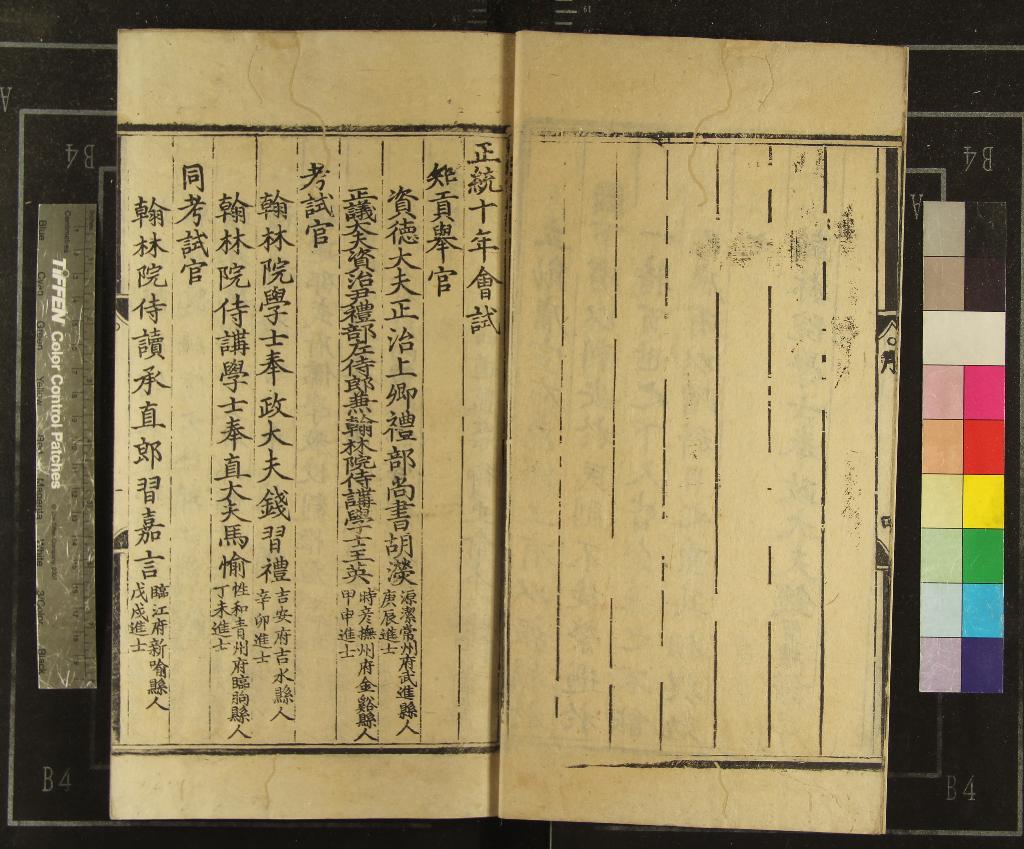 正統十年會試
知貢舉官
資德大夫正治上卿禮部尚書胡濙
源潔常州府武進縣人
庚辰進士
正議大夫資治尹禮部左侍郎兼翰林院侍講學士王英
時彥撫州府金谿縣人
甲申進士
考試官
翰林院學士奉政大夫錢習禮
吉安府吉水縣人
辛卯進士
翰林院侍講學士奉直大夫馬愉
性和青州府臨朐縣人
丁未進士
同考試官
翰林院侍讀承直郎習嘉言
臨江府新喻縣人
戊戌進士
TIFFEN Color Control Patches
B4
B4
B4
B4
A
A